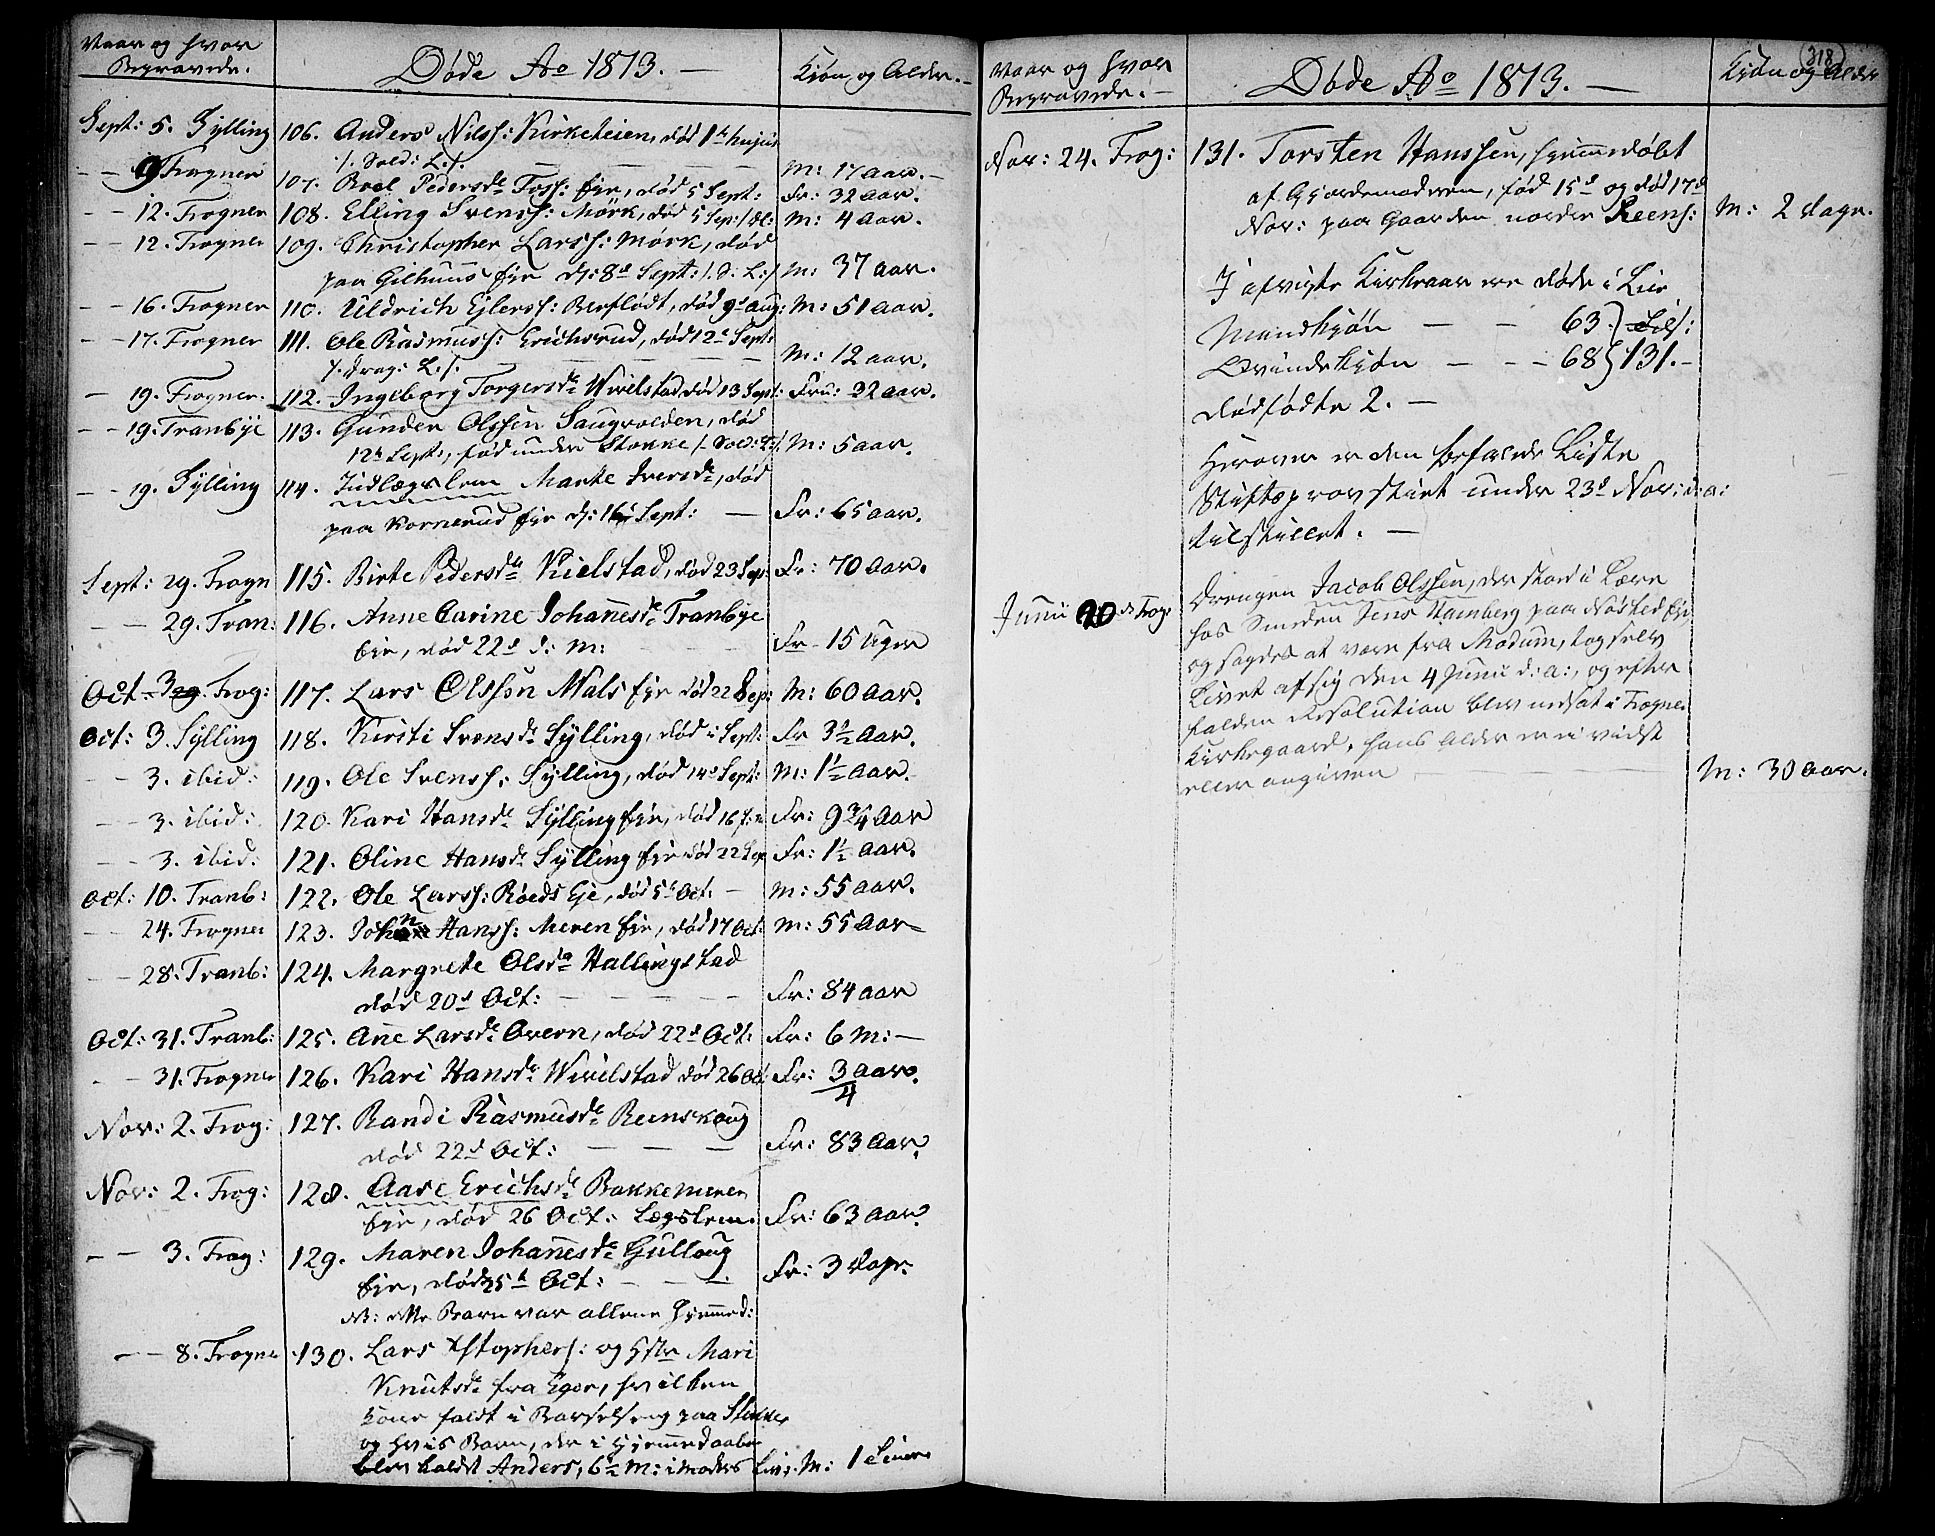 Naar og hvor
Begravede.
Døde Ao 1813. —
Kiøn og Alder. —
Sept: 5. Sylling 106. Anders Nilss: Kirketeien, død 1te hujus
/. Sold: L./. — M: 17 Aar. —
— — 9 Frogner 107. Boel Pedersdr. Foss: Eje, død 5 Sept: Fr: 32 Aar.
— — 12. Frogner 108. Elling Svenss: Mörk, død 5 Sep: M: 4 Aar.
— — 12. Frogner 109. Christopher Larss: Mörk, død
paa Gilhuus Eje d: 8de Sept: /. S: L:/. M: 37 Aar.
— — 16. Frogner 110. Uldrich Ejlerss: død 9de Aug: M: 51 Aar.
— — 17. Frogner 111. Ole Rasmuss: Erichsrud, død 12te Sept:
/. Drag: L:/. M: 12 Aar.
— 19. Frogner. 112. Ingeborg Torgersdr. Wivelstad, død 13 Sept: Fru: 32 Aar.
— — 19. Tranbye 113. Gunder Olssen Saugvolden, død
12te Sept:, født under Stokke /. Sold: L:/. M: 5 Aar.
— — 19. Sylling 114. Indlægslem Marte Iversdr., død
paa Kornerud Eje d: 16 Sept: — Fr: 65 Aar.
Sept: 29. Frogn 115. Birte Pedersdr. Kielstad, død 23 Sep: Fr: 70 Aar.
— — 29. Tran: 116. Anne Carine Johanesdr. Tranbye
Eje, død 22de d: M: Fr 15 Uger
Oct: 3. Frog: 117. Lars Olsson Mals Eje død 22 Sep: M: 60 Aar.
Oct: 3. Sylling 118. Kirsti Svensdr. Sylling, død i Sept: Fr 3½ Aar.
— — 3. ibid: 119. Ole Svenss: Sylling, død 14de Sept: M: 1½ Aar.
— — 3. ibid: 120. Kari Hansdr. Sylling Eje, død 16 Fr: 9¾ Aar
— — 3. ibid: 121. Oline Hansdr. Sylling Eje død 22 Sep Fr: 1½ Aar.
Oct: 10. Tranb: 122. Ole Larss: Röeds Eje, død 5te Oct: — M: 55 Aar.
— 24. Frogner 123. John Hanss: Meren Eje, død 17 Oct: M: 55 Aar
— — 28. Tranb: 124. Margrete Olsdr Hallingstad
død 20de Oct: — — — Fr: 84 Aar
Oct: 31. Tranb: 125. Ane Larsdr. Overn, død 22de Oct: Fr: 6 M: —
— — 31. Frogner 126. Kari Hansdr. Wivelstad død 26 Oct: Fr: 3/4 Aar.
Nov: 2. Frog: 127. Randi Rasmusdr. Reenskoug
død 22de Oct: — — — Fr: 83 Aar.
Nov: 2. Frog: 128. Aase Erichsdr. Bakkemeren
Eje, død 26 Oct: Lægslem. Fr: 63 Aar.
— — 3. Frog: 129. Maren Johanesdr. Gulloug
Eje, død 25de Oct: — — — Fr: 3 Dage.
NB: dette Barn var allene hjemmed:
— — 8. Frogne 130. Lars Xstophers: og Hstr Mari
Knutsdr. fra Eger, hvilken
Kone faldt i Barselseng paa Stokke
og hvis Barn, der i Hjemmedaaben
blev kaldt Anders, 6½ M: i Moders Liv. M: 1
318
Naar og hvor
Begravede. —
Döde Ao 1813. —
Kiön og Alder
Nov: 24. Frog: 131. Torsten Hanssen, hjemmedøbt
af Gjordemoderen, fød 15de og død 17de
Nov: paa Gaarden nordre Reens: M: 2 Dage.
I afvigte Kirkeaar ere døde i Lier
Mandkjøn — — 63.
Qvindekjøn — — 68 } 131. —
dødfødte 2. —
Herover er den befalede Liste
Stiftsprovstiet under 23de Nov: d: a:
tilstillet. —
Junii 20de Frog: Drengen Jacob Olssen, der stod i Lære
hos Smeden Jens Hamberg paa Nøsted Eje
og sagdes at være fra Modum, tog selv
Livet af sig den 4 Junii d: a:, og efter
falden Resolution blev nedsat i Frogner
Kirkegaard, hans Alder er ei vidst
eller angiven — — — M: 30 Aar.